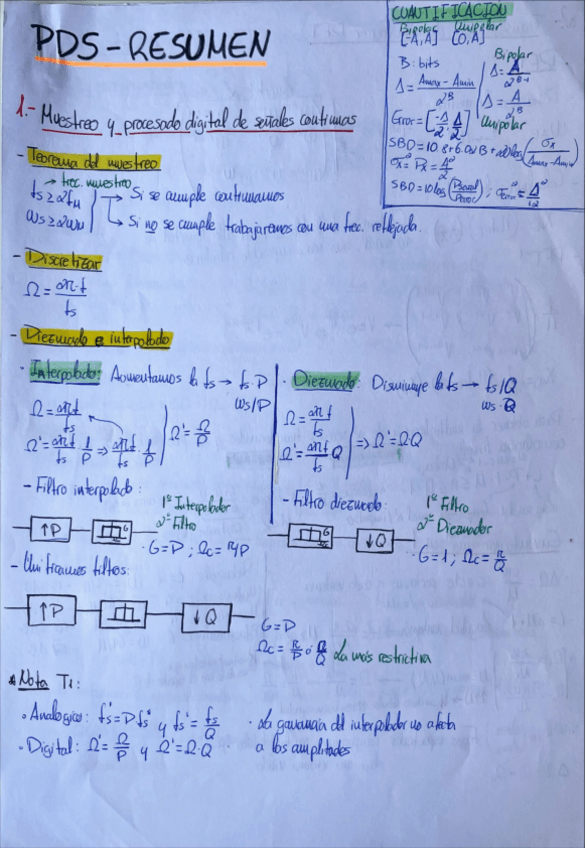 PDS - RESUMEN
CUANTIFICACIÓN
Bipolar Unipolar
[-A,A] [0,A]
B: bits
Δ = (Amax - Amin) / 2^B
Bipolar
Δ = A / 2^(B-1)
Δ = A / 2^B
Unipolar
Error = [-Δ/2, Δ/2]
SBD = 10.8 + 6.02B + 20log(σx / (Amax - Amin))
SBD = 10log(
1.- Muestreo y procesado digital de señales continuas
- Teorema del muestreo
→ frec. muestreo
fs ≥ 2fM → Si se cumple continuamos
ωs ≥ 2ωM → Si no se cumple trabajaremos con una frec. reflejada.
- Discretizar
Ω = 2π·f / fs
- Diezmado e interpolado
· Interpolado: Aumentamos la fs → fs·P
ωs/P
Ω = 2πf / fs
Ω' = 2πf/fs · 1/P ⇒ 2πf/fs · 1/P | Ω' = Ω/P
- Filtro interpolado:
1º Interpolador
2º Filtro
↑P G
· G = P ; Ωc = π/P
· Diezmado: Disminuye la fs → fs/Q
ωs·Q
Ω = 2πf / fs
Ω' = 2πf/fs Q | ⇒ Ω' = Ω·Q
- Filtro diezmado:
1º Filtro
2º Diezmador
G ↓Q
· G = 1 ; Ωc = π/Q
- Unificamos filtos:
↑P ↓Q
G = P
Ωc = π/P ó π/Q La más restrictiva
* Nota T1:
· Analogico: fs' = P fs y fs' = fs/Q
· Digital: Ω' = Ω/P y Ω' = Ω·Q
· La ganancia del interpolador no afecta
a las amplitudes